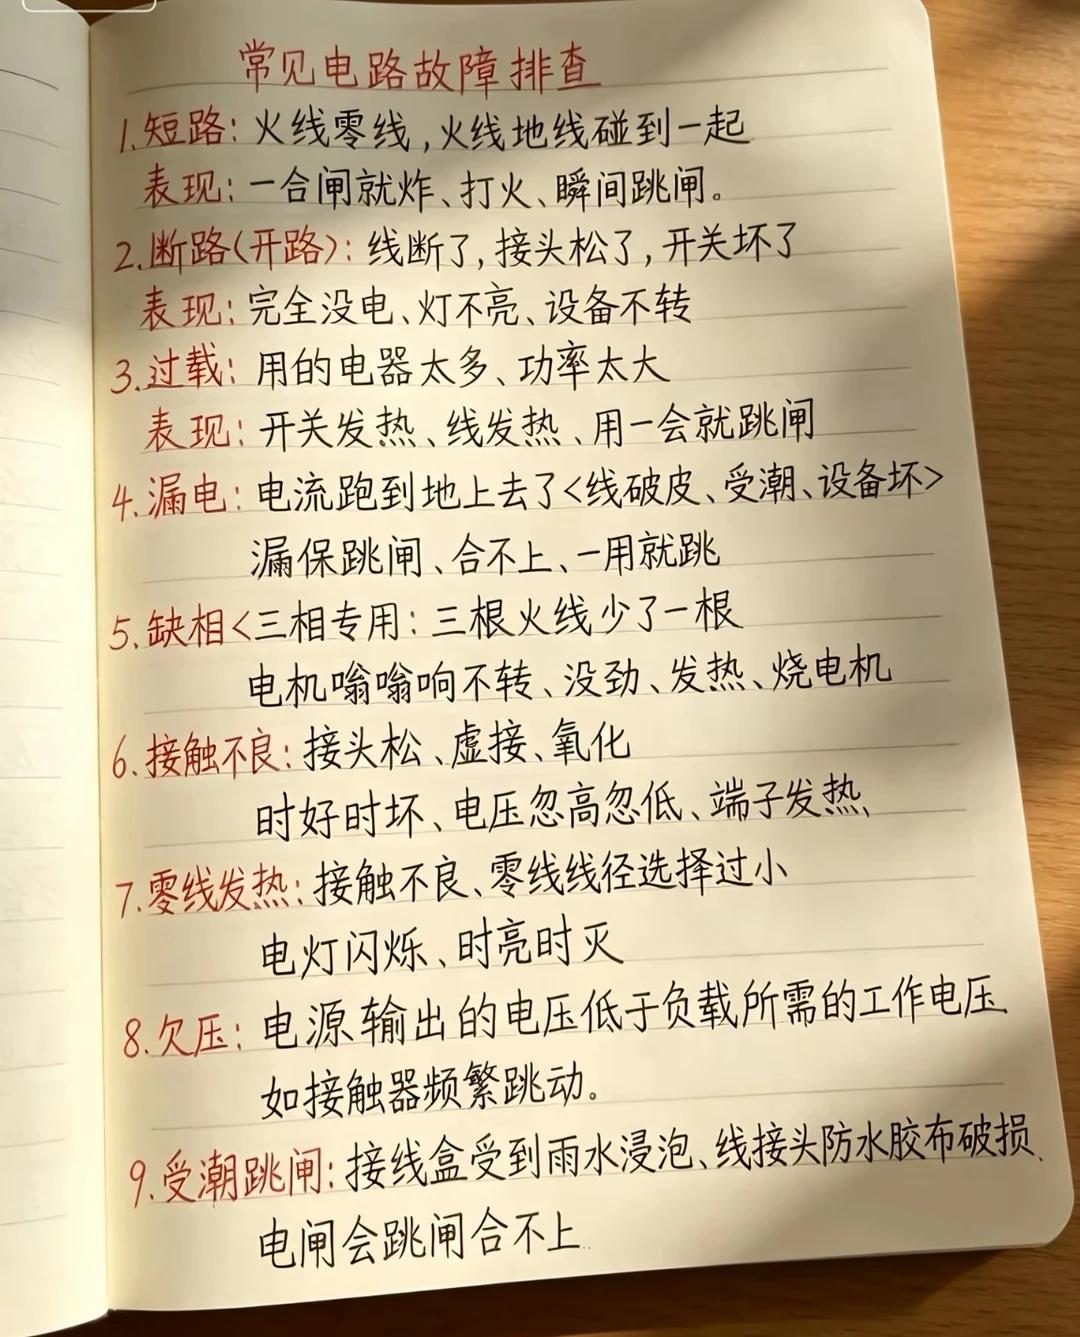 常见电路故障排查
1.短路：火线零线，火线地线碰到一起
表现：一合闸就炸、打火、瞬间跳闸。
2.断路（开路）：线断了，接头松了，开关坏了
表现：完全没电、灯不亮、设备不转
3.过载：用的电器太多、功率太大
表现：开关发热、线发热、用一会就跳闸
4.漏电：电流跑到地上去了<线破皮、受潮、设备坏>
漏保跳闸、合不上、一用就跳
5.缺相<三相专用：三根火线少了一根
电机嗡嗡响不转、没劲、发热、烧电机
6.接触不良：接头松、虚接、氧化
时好时坏、电压忽高忽低、端子发热、
7.零线发热：接触不良、零线线径选择过小
电灯闪烁、时亮时灭
8.欠压：电源输出的电压低于负载所需的工作电压
如接触器频繁跳动。
9.受潮跳闸：接线盒受到雨水浸泡、线接头防水胶布破损、
电闸会跳闸合不上